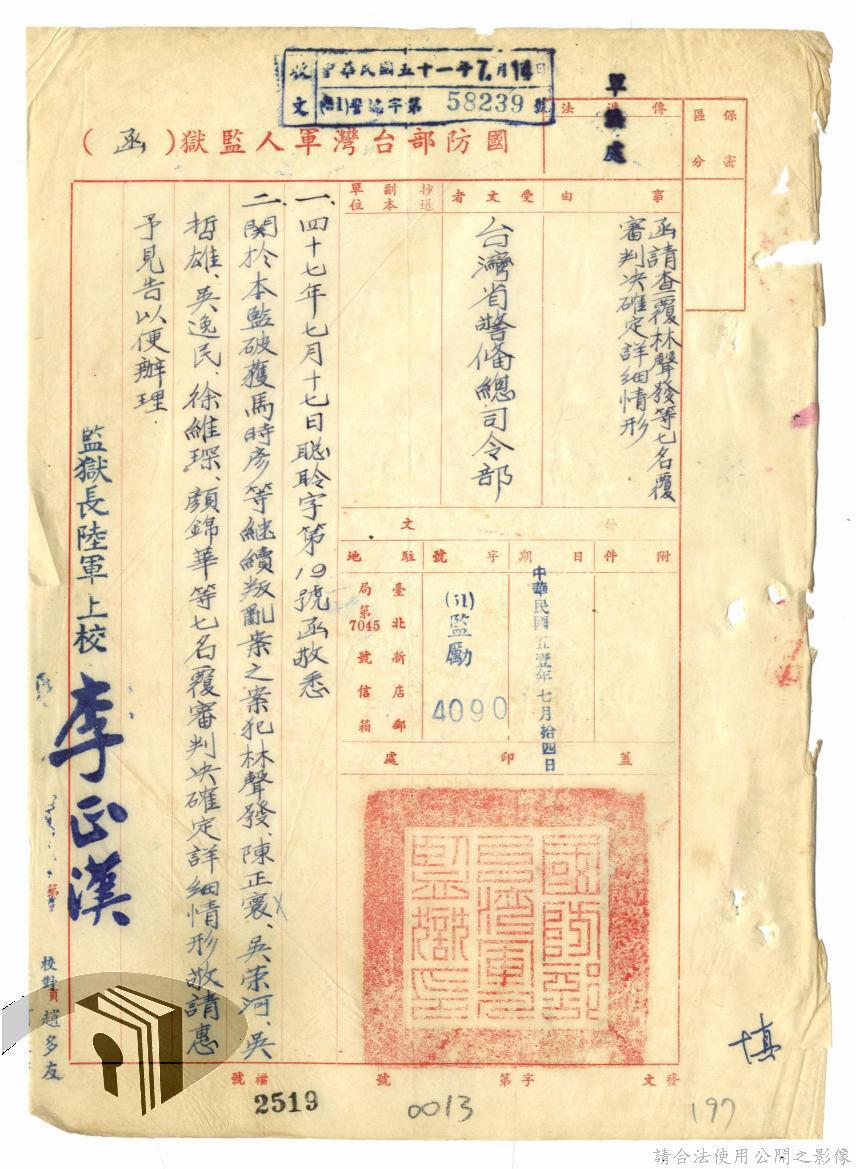 收文
中華民國五十一年7月14日
(51)警總字第58239號
軍法處
保密區分
傳遞法
國防部台灣軍人監獄(函)
事由
函請查覆林聲發等七名覆
審判決確定詳細情形
受文者
台灣省警備總司令部
抄送副本單位
發文
附件
日期
中華民國五壹年七月拾四日
字號
(51)監勵
4090
駐地
臺北新店郵
局第7045號信箱
蓋印處
國防部台灣軍人監獄印
一、四十七年七月十七日聰聆字第19號函敬悉
二、關於本監破獲馬時彥等継續叛亂案之案犯林聲發、陳正宸、吳荣河、吳
哲雄、吳逸民、徐維琛、顏錦華等七名覆審判決確定詳細情形敬請惠
予見告以便辦理.
監獄長陸軍上校 李正漢
校對員 趙多友
發文字第號
檔號
2519
0013
197
請合法使用公開之影像